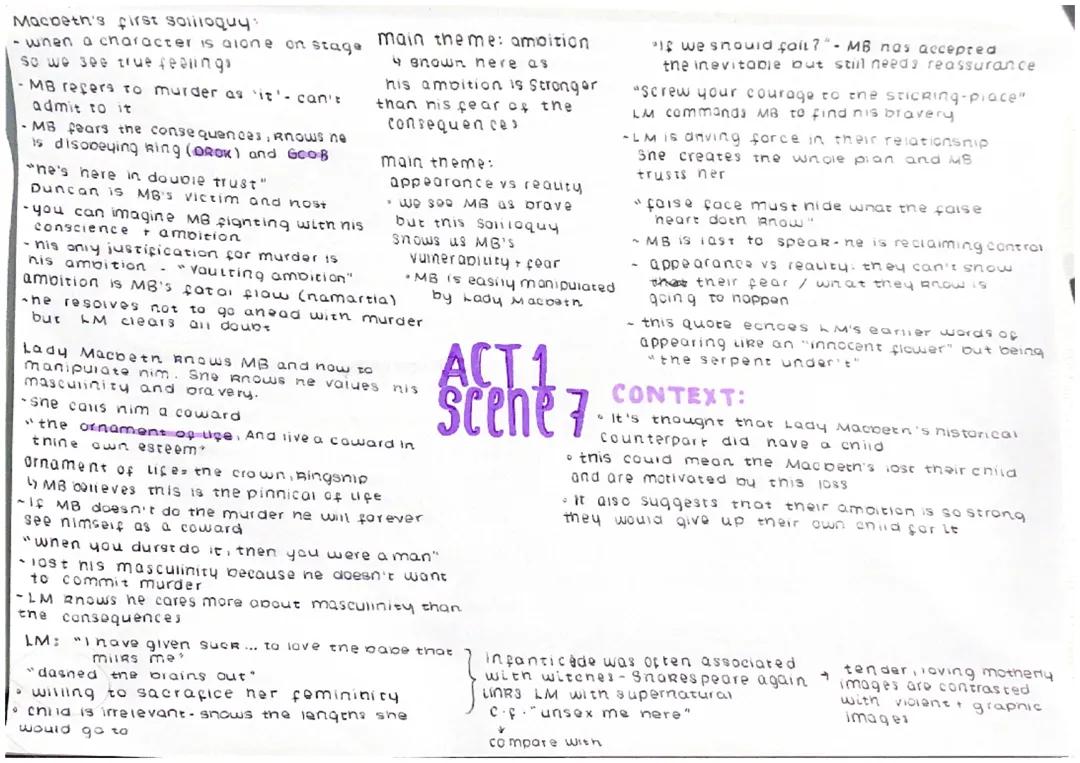 Macbeth's first soliloquy:
- when a character is alone on stage
so we see true feelings
- MB refers to murder as 'it' - can't
admit to it
- MB fears the consequences, knows he
is disobeying king (DROK) and GOOB
"he's here in double trust"
Duncan is MB's victim and host
- you can imagine MB fighting with his
conscience + ambition
- his only justification for murder is
his ambition - "vaulting ambition"
ambition is MB's fatal flaw (hamartia)
- he resolves not to go ahead with murder
but LM clears all doubt
Lady Macbeth knows MB and how to
manipulate him. She knows he values his
masculinity and bravery.
- she calls him a coward
"the ornament of life, And live a coward in
thine own esteem"
ornament of life = the crown, kingship
↳ MB believes this is the pinnical of life
- If MB doesn't do the murder he will forever
see himself as a coward
"when you durst do it, then you were a man"
- lost his masculinity because he doesn't want
to commit murder
- LM knows he cares more about masculinity than
the consequences
LM: "I have given suck... to love the babe that
milks me"
"dashed the brains out"
• willing to sacrafice her femininity
• child is irrelevant - shows the lengths she
would go to
main theme: ambition
↳ shown here as
his ambition is stronger
than his fear of the
consequences
main theme:
appearance vs reality
• we see MB as brave
but this soliloquy
shows us MB's
vulnerability + fear
• MB is easily manipulated
by Lady Macbeth
ACT 1
Scene 7
"If we should fail?" - MB has accepted
the inevitable but still needs reassurance
"Screw your courage to the sticking-place"
LM commands MB to find his bravery
- LM is driving force in their relationship
She creates the whole plan and MB
trusts her
"false face must hide what the false
heart doth know"
- MB is last to speak - he is reclaiming control
- appearance vs reality: they can't show
their fear / what they know is
going to happen
- this quote echoes LM's earlier words of
appearing like an "innocent flower" but being
"the serpent under't"
CONTEXT:
• It's thought that Lady Macbeth's historical
counterpart did have a child
• this could mean the Macbeth's lost their child
and are motivated by this loss
• It also suggests that their ambition is so strong
they would give up their own child for it
infanticide was often associated
with witches - Shakespeare again
links LM with supernatural
c.f. "unsex me here"
↓
compare with
→ tender, loving motherly
images are contrasted
with violent + graphic
images